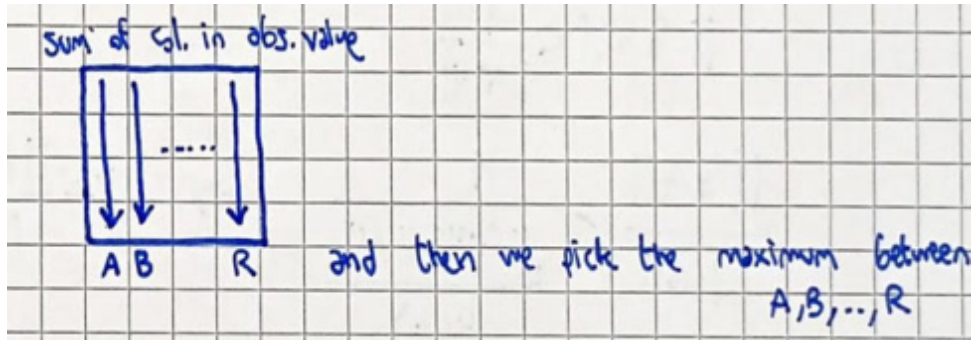 sum of col. in abs. value
.....
A B R and then we pick the maximum between
A,B,..,R